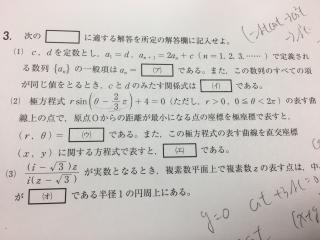 3. 次の　　　に適する解答を所定の解答欄に記入せよ。
(1) c, dを定数とし, a₁=d, aₙ₊₁=2aₙ+c (n=1, 2, 3, ……) で定義され
る数列 {aₙ} の一般項は aₙ= (ア) である。また, この数列のすべての項
が同じ値をとるとき, cとdのみたす関係式は (イ) である。
(2) 極方程式 r sin(θ－2/3 π)+4=0 (ただし, r>0, 0≦θ<2π) の表す曲
線上の点で, 原点Oからの距離が最小になる点の座標を極座標で表すと,
(r, θ)= (ウ) である。また, この極方程式の表す曲線を直交座標
(x, y) に関する方程式で表すと, (エ) である。
(3) (i－√3)z / i(z－√3) が実数となるとき, 複素数平面上で複素数zの表す点は, 中
が (オ) である半径1の円周上にある。
y=0